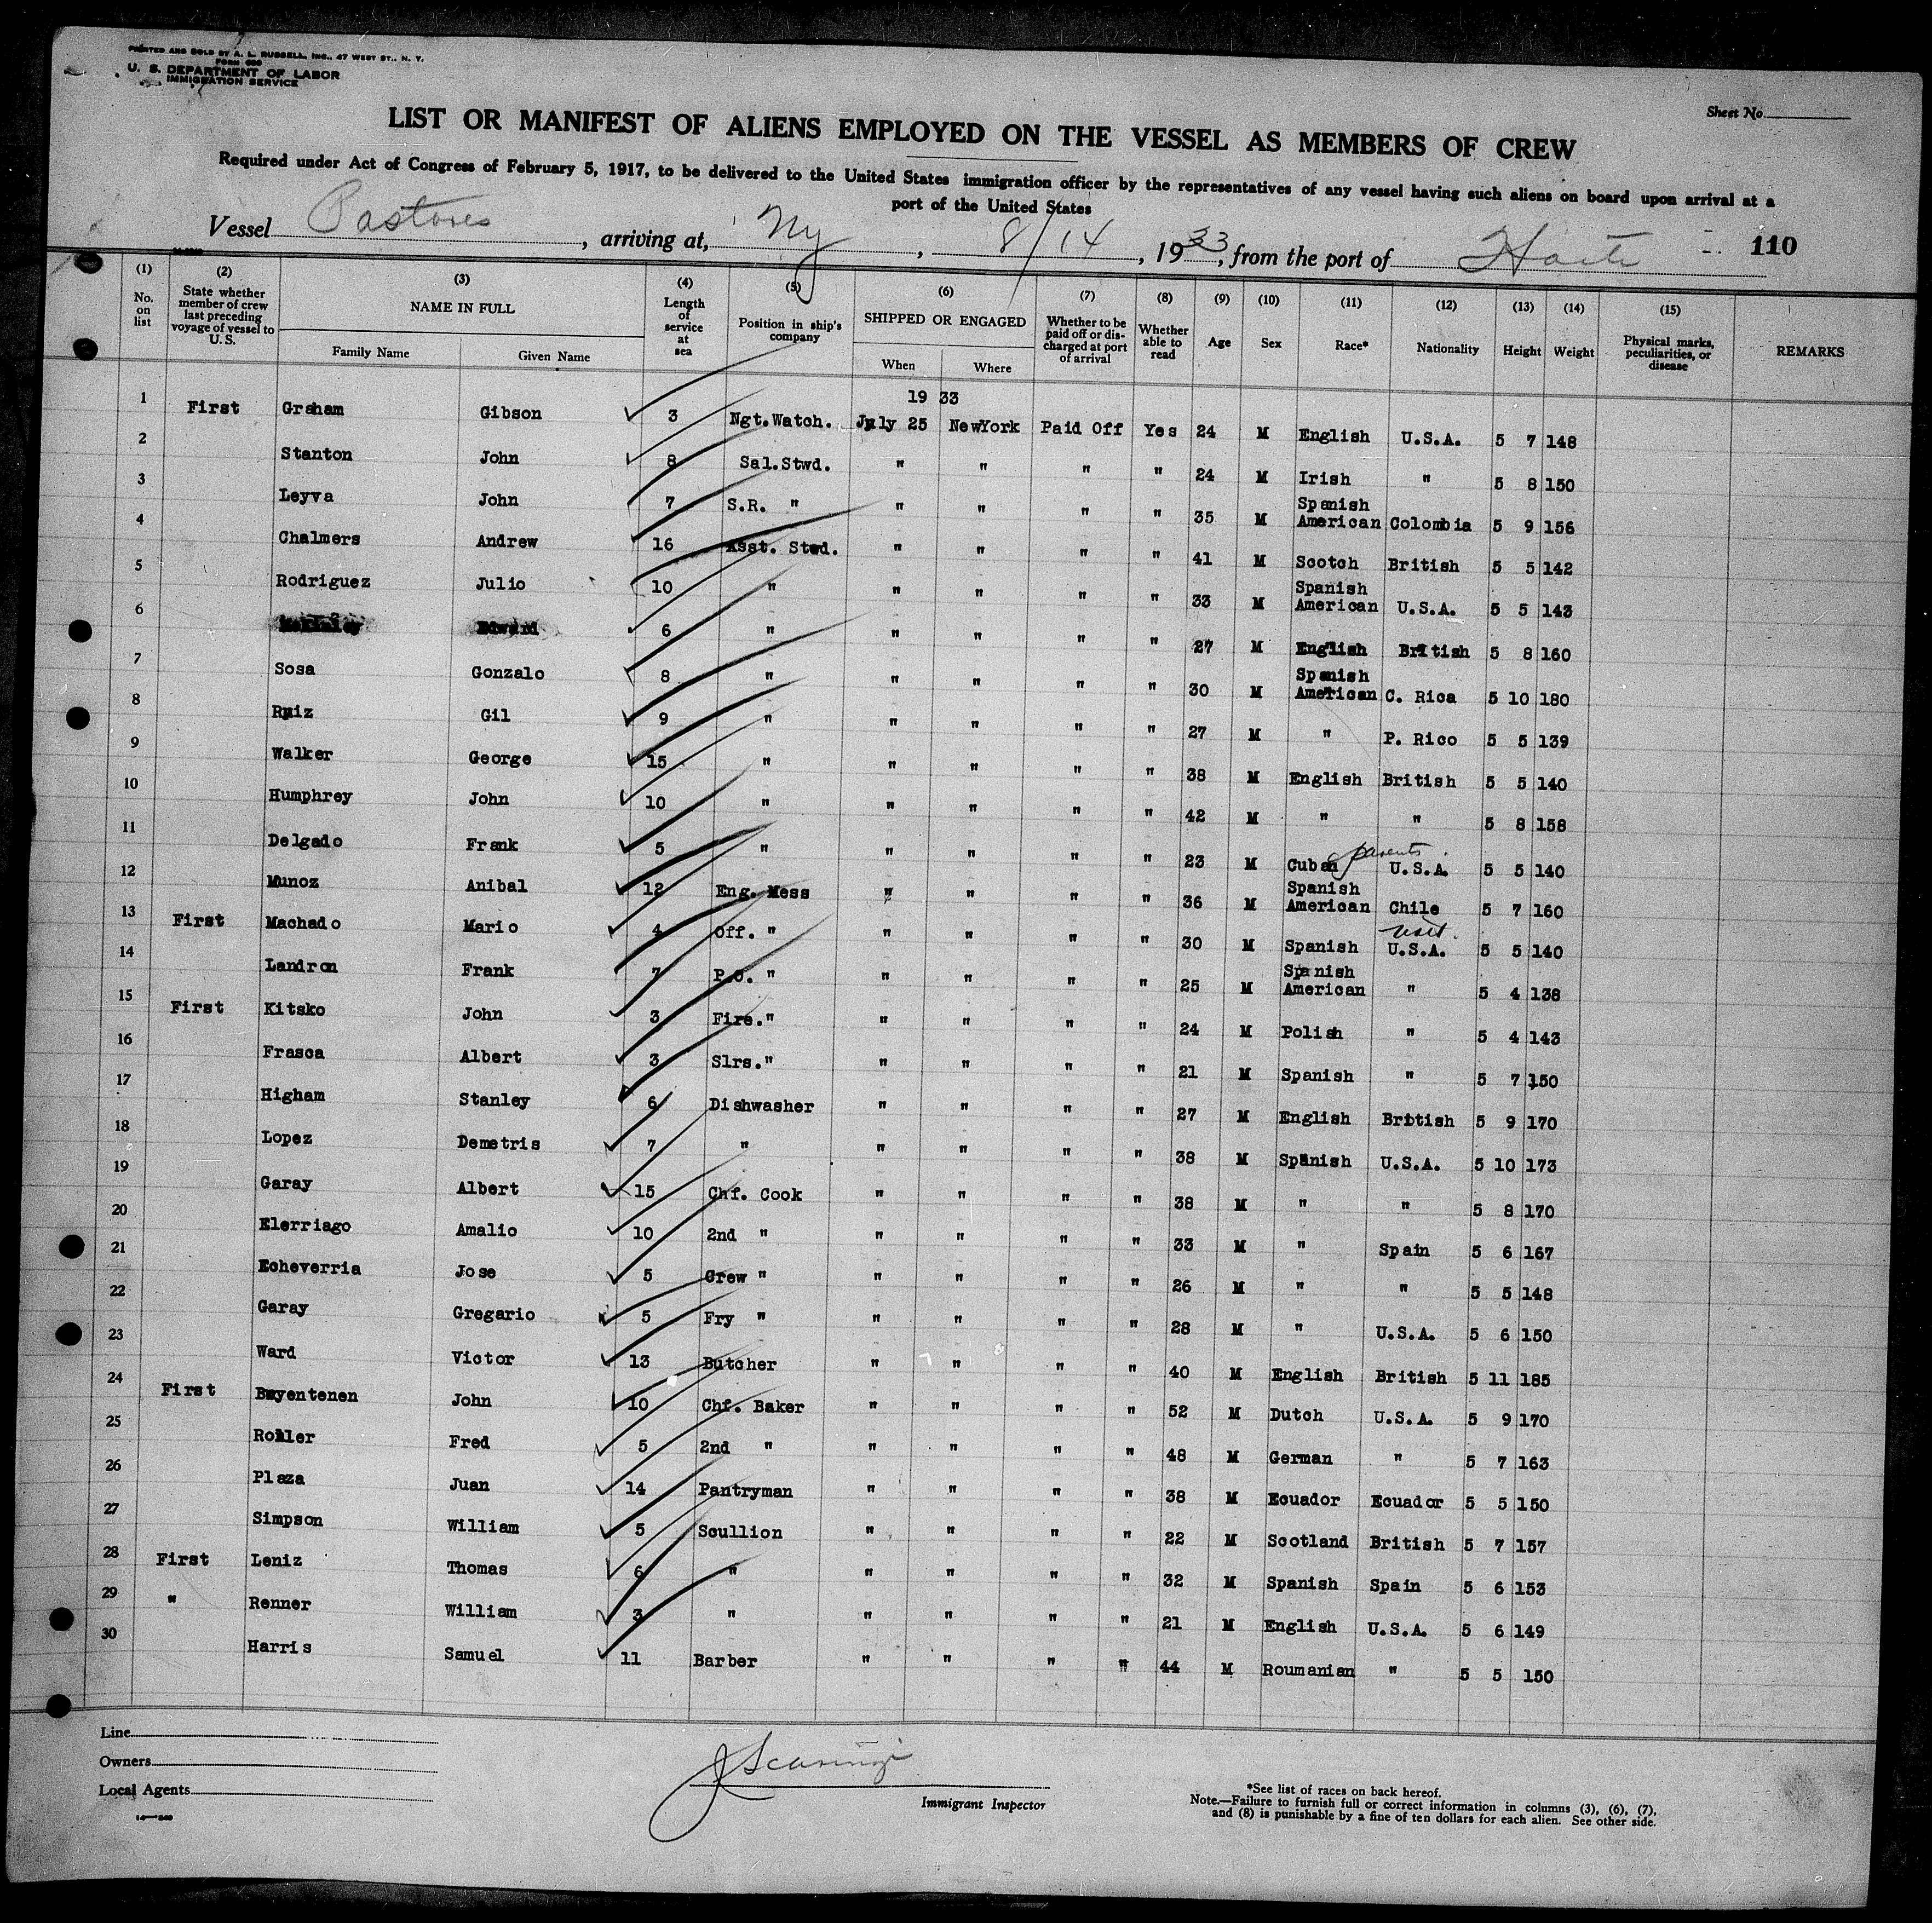 PRINTED AND SOLD BY A. L. RUSSELL, INC., 47 WEST ST., N. Y.
FORM 680
U. S. DEPARTMENT OF LABOR
IMMIGRATION SERVICE
Sheet No.
LIST OR MANIFEST OF ALIENS EMPLOYED ON THE VESSEL AS MEMBERS OF CREW
Required under Act of Congress of February 5, 1917, to be delivered to the United States immigration officer by the representatives of any vessel having such aliens on board upon arrival at a
port of the United States
Vessel Pastores, arriving at, Ny, 8/14, 1933, from the port of Haiti 110
(1) (2) (3) (4) (5) (6) (7) (8) (9) (10) (11) (12) (13) (14) (15)
No. on list State whether member of crew last preceding voyage of vessel to U. S. NAME IN FULL Family Name Given Name Length of service at sea Position in ship's company SHIPPED OR ENGAGED When Where Whether to be paid off or discharged at port of arrival Whether able to read Age Sex Race* Nationality Height Weight Physical marks, peculiarities, or disease REMARKS
19 33
1 First Graham Gibson 3 Ngt.Watch. July 25 NewYork Paid Off Yes 24 M English U.S.A. 5 7 148
2 Stanton John 8 Sal.Stwd. " " " " 24 M Irish " 5 8 150
3 Leyva John 7 S.R. " " " " " 35 M Spanish American Colombia 5 9 156
4 Chalmers Andrew 16 Asst. Stwd. " " " " 41 M Scotch British 5 5 142
5 Rodriguez Julio 10 " " " " " 33 M Spanish American U.S.A. 5 5 143
6 Edward 6 " " " " " 27 M English British 5 8 160
7 Sosa Gonzalo 8 " " " " " 30 M Spanish American C. Rica 5 10 180
8 Ruiz Gil 9 " " " " " 27 M " P. Rico 5 5 139
9 Walker George 15 " " " " " 38 M English British 5 5 140
10 Humphrey John 10 " " " " " 42 M " " 5 8 158
11 Delgado Frank 5 " " " " " 23 M Cuban parents U.S.A. 5 5 140
12 Munoz Anibal 12 Eng. Mess " " " " 36 M Spanish American Chile 5 7 160
13 First Machado Mario 4 Off. " " " " " 30 M Spanish U.S.A. 5 5 140
14 Landron Frank 7 P.O. " " " " " 25 M Spanish American " 5 4 138
15 First Kitsko John 3 Fire." " " " " 24 M Polish " 5 4 143
16 Frasca Albert 3 Slrs." " " " " 21 M Spanish " 5 7 150
17 Higham Stanley 6 Dishwasher " " " " 27 M English British 5 9 170
18 Lopez Demetris 7 " " " " " 38 M Spanish U.S.A. 5 10 173
19 Garay Albert 15 Chf. Cook " " " " 38 M " " 5 8 170
20 Elerriago Amalio 10 2nd " " " " " 33 M " Spain 5 6 167
21 Echeverria Jose 5 Crew " " " " " 26 M " " 5 5 148
22 Garay Gregario 5 Fry " " " " " 28 M " U.S.A. 5 6 150
23 Ward Victor 13 Butcher " " " " 40 M English British 5 11 185
24 First Buyentenen John 10 Chf. Baker " " " " 52 M Dutch U.S.A. 5 9 170
25 Roller Fred 5 2nd " " " " " 48 M German " 5 7 163
26 Plaza Juan 14 Pantryman " " " " 38 M Ecuador Ecuador 5 5 150
27 Simpson William 5 Scullion " " " " 22 M Scotland British 5 7 157
28 First Leniz Thomas 6 " " " " " 32 M Spanish Spain 5 6 153
29 " Renner William 3 " " " " " 21 M English U.S.A. 5 6 149
30 Harris Samuel 11 Barber " " " " 44 M Roumanian " 5 5 150
Line
Owners
Local Agents
Immigrant Inspector
*See list of races on back hereof.
Note.—Failure to furnish full or correct information in columns (3), (6), (7),
and (8) is punishable by a fine of ten dollars for each alien. See other side.